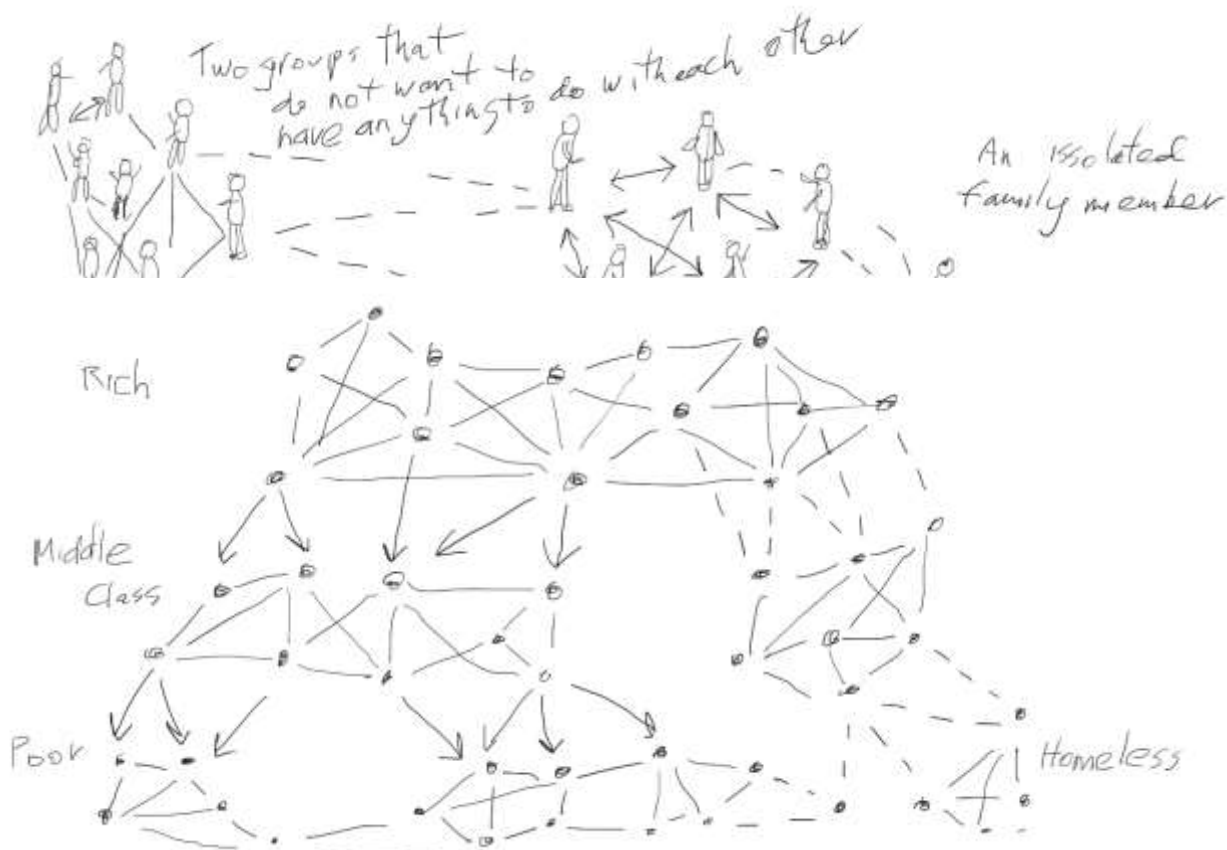 Two groups that
do not want to
have anything to do with each other
An issolated
family member
Rich
Middle
Class
Poor
Homeless